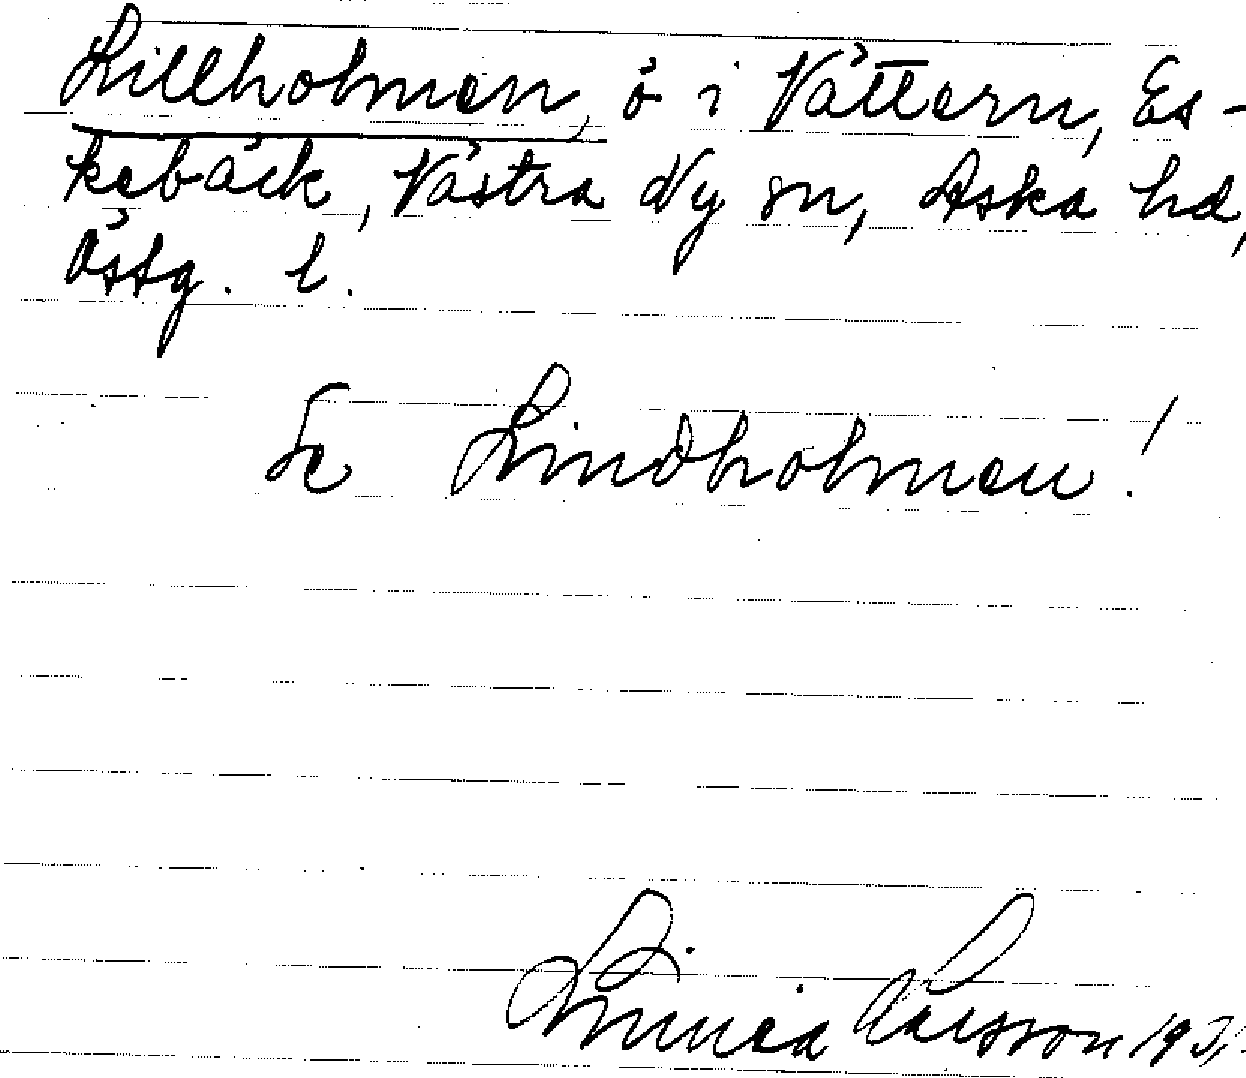 Lillholmen, ö i Vättern, Es-
kebäck, Västra Ny sn, Aska hd,
Östg. l.
Se Lindholmen!
Linnéa Larsson